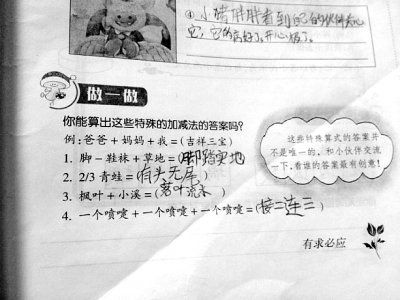 ④小猪胖胖看到自己的伙伴关心
它，它的病好了，开心极了。
做一做
你能算出这些特殊的加减法的答案吗？
例：爸爸+妈妈+我=(吉祥三宝)
1. 脚－鞋袜+草地=(脚踏实地)
2. 2/3 青蛙=(有头无尾)
3. 枫叶+小溪=(落叶流水)
4. 一个喷嚏+一个喷嚏+一个喷嚏=(接二连三)
这些特殊算式的答案并
不是唯一的，和小伙伴交流
一下，看谁的答案最有创意！
有求必应